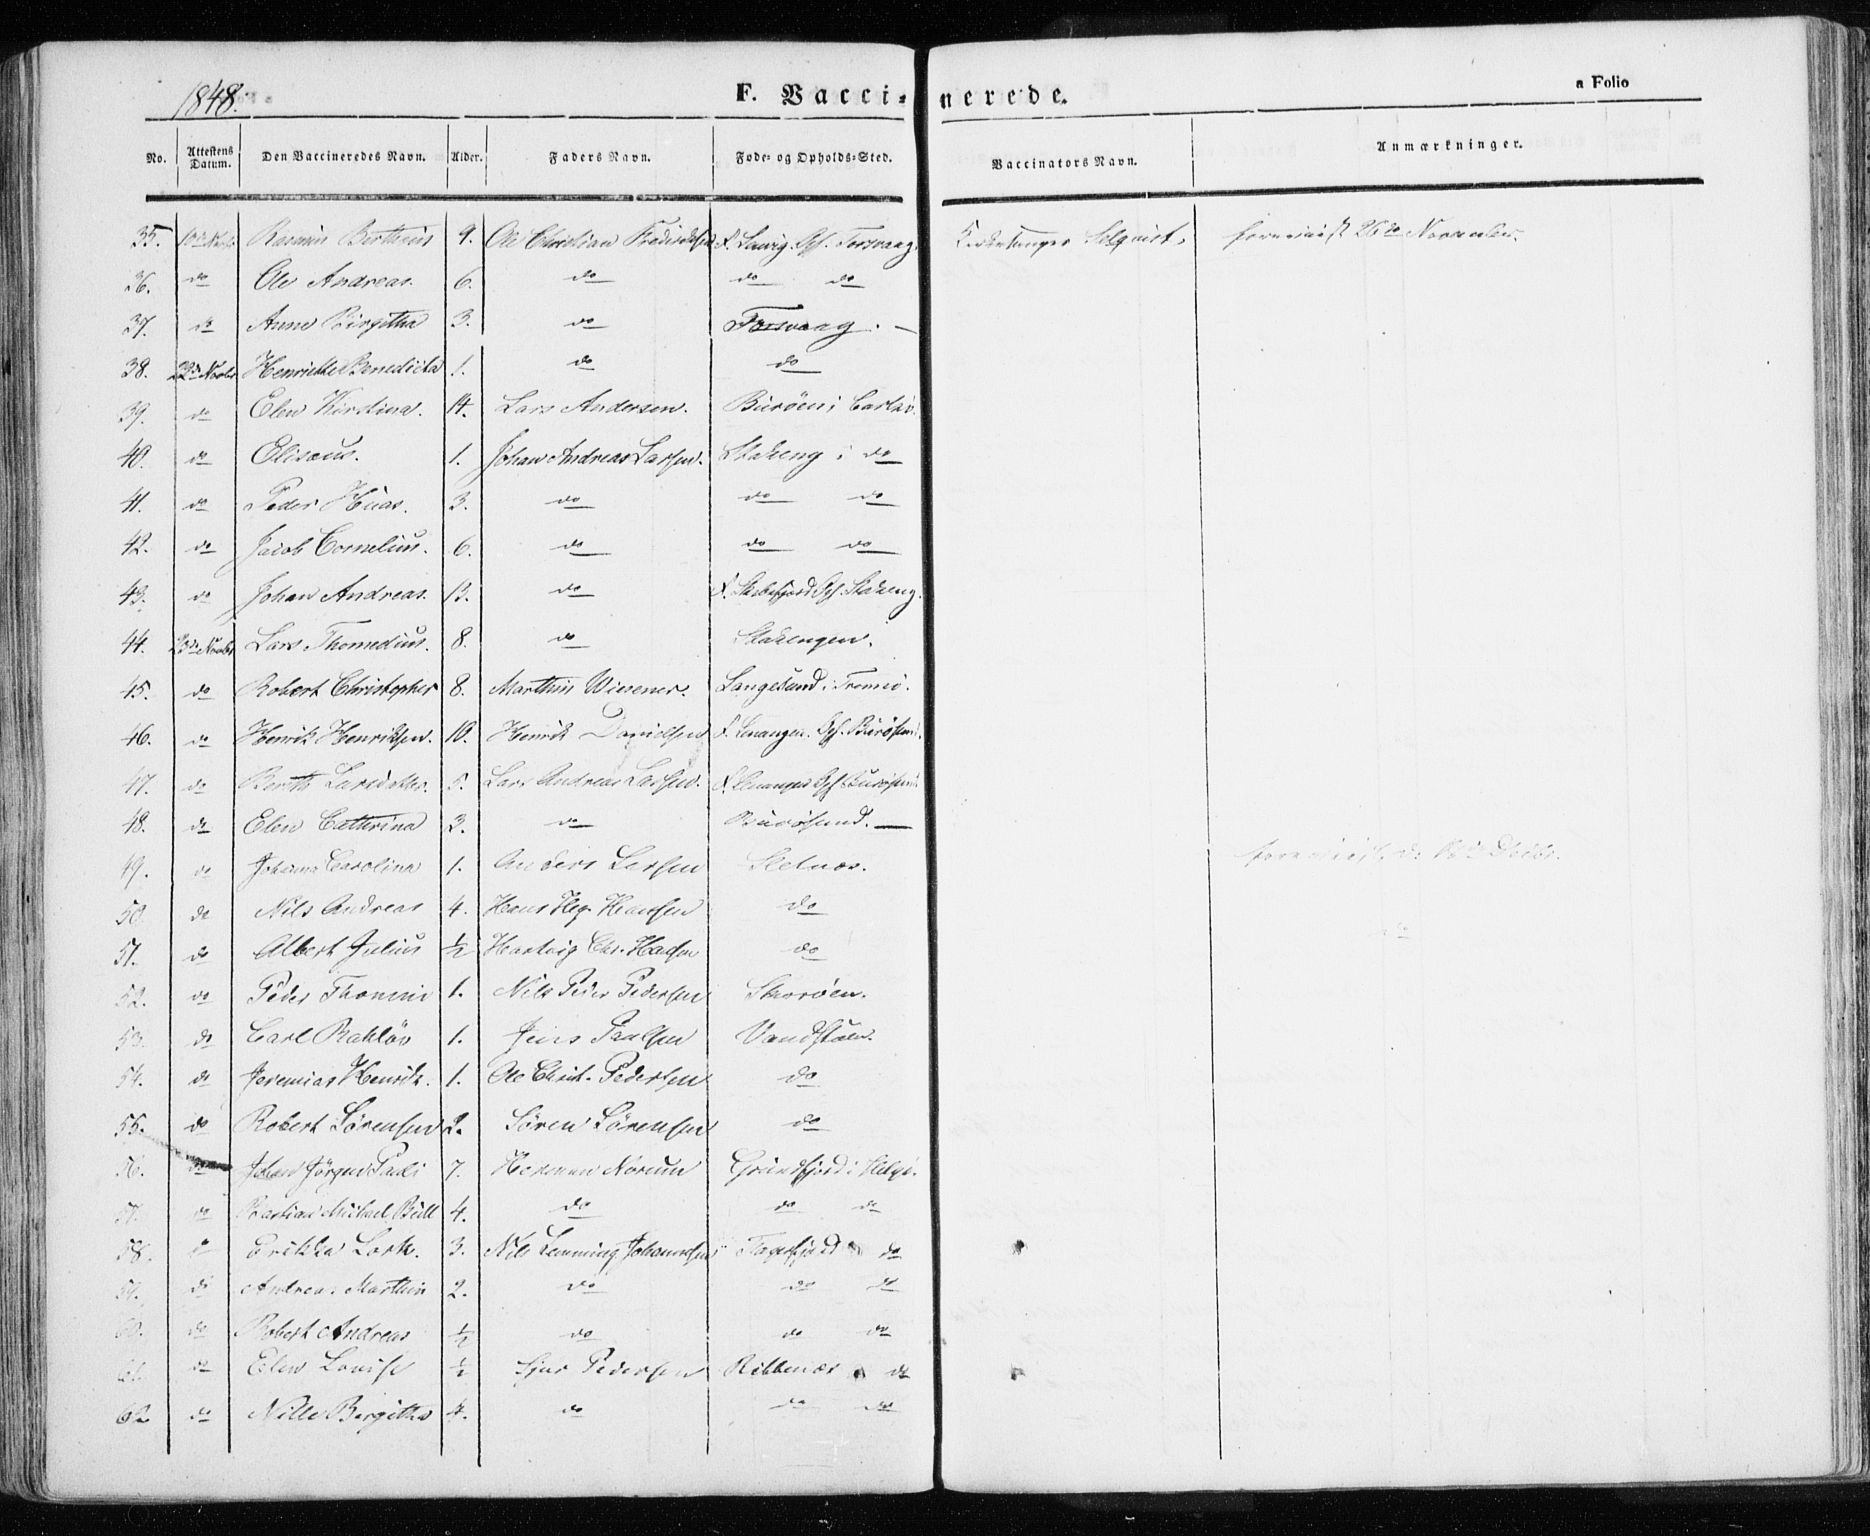 1848.
F. Vaccinerede.
a Folio
No. Attestens Datum. Den Vaccineredes Navn. Alder. Faders Navn. Fode- og Opholds-Sted. Vaccinators Navn. Anmærkninger.
35. Rasmus Bertheus 9. Ole Christian Fredriksen Torsvaag. Kirkesanger Selqvist. 26de November.
36. do Ole Andreas. 6. do do do
37. do Anne Birgitha 3. do Torsvaag.
38. 22de Novbr Henrikke Benedicta 1. do do
39. do Elen Kirstina. 14. Lars Andersen. Burøen i
40. do Elisæus. 1. Johan Andreas Larsen. Stakeng i do
41. do Peder Huas. 3. do do do
42. do Jacob Cornelius. 6. do do do
43. do Johan Andreas. 13. do Stakeng.
44. 23de Novbr Lars Thomedius. 8. do Stakengen.
45. do Robert Christopher 8. Marthin Wiesener. Langesund i Tromsø.
46. do Henrik Henriksen. 10. Henrik Danielsen Burøsund.
47. do Larsdatter. 5. Lars Andreas Larsen. Burøsund
48. do Elen Cathrina 3. do Burøsund.
49. do Johanna Carolina 1. Anders Larsen Sletnæs.
50. do Nils Andreas 4. Hans Hansen do
51. do Albert Julius ½ Hartvig Chr. Hansen do
52. do Peder 1. Nils Peder Pedersen Skorøen.
53. do Carl 1. Jens Paulsen
54. do Jeremias Henrik. 1. Ole Christ. Pedersen do
55. do Robert Sørensen 2. Søren Sørensen do
56. do Johan Jörgen 7. Herman Norum Grundfjord i Helgø.
57. do Bastian Michael Bull 4. do do do
58. Erikka 3. Nils Lemming Johannesen do
59. do Andreas Marthin 2. do do do
60. do Robert Andreas ½ do do do
61. do Elen Lovise ½ Sjur Pedersen Ribbenæs do
62. do Nille Bergitha 4. do do do